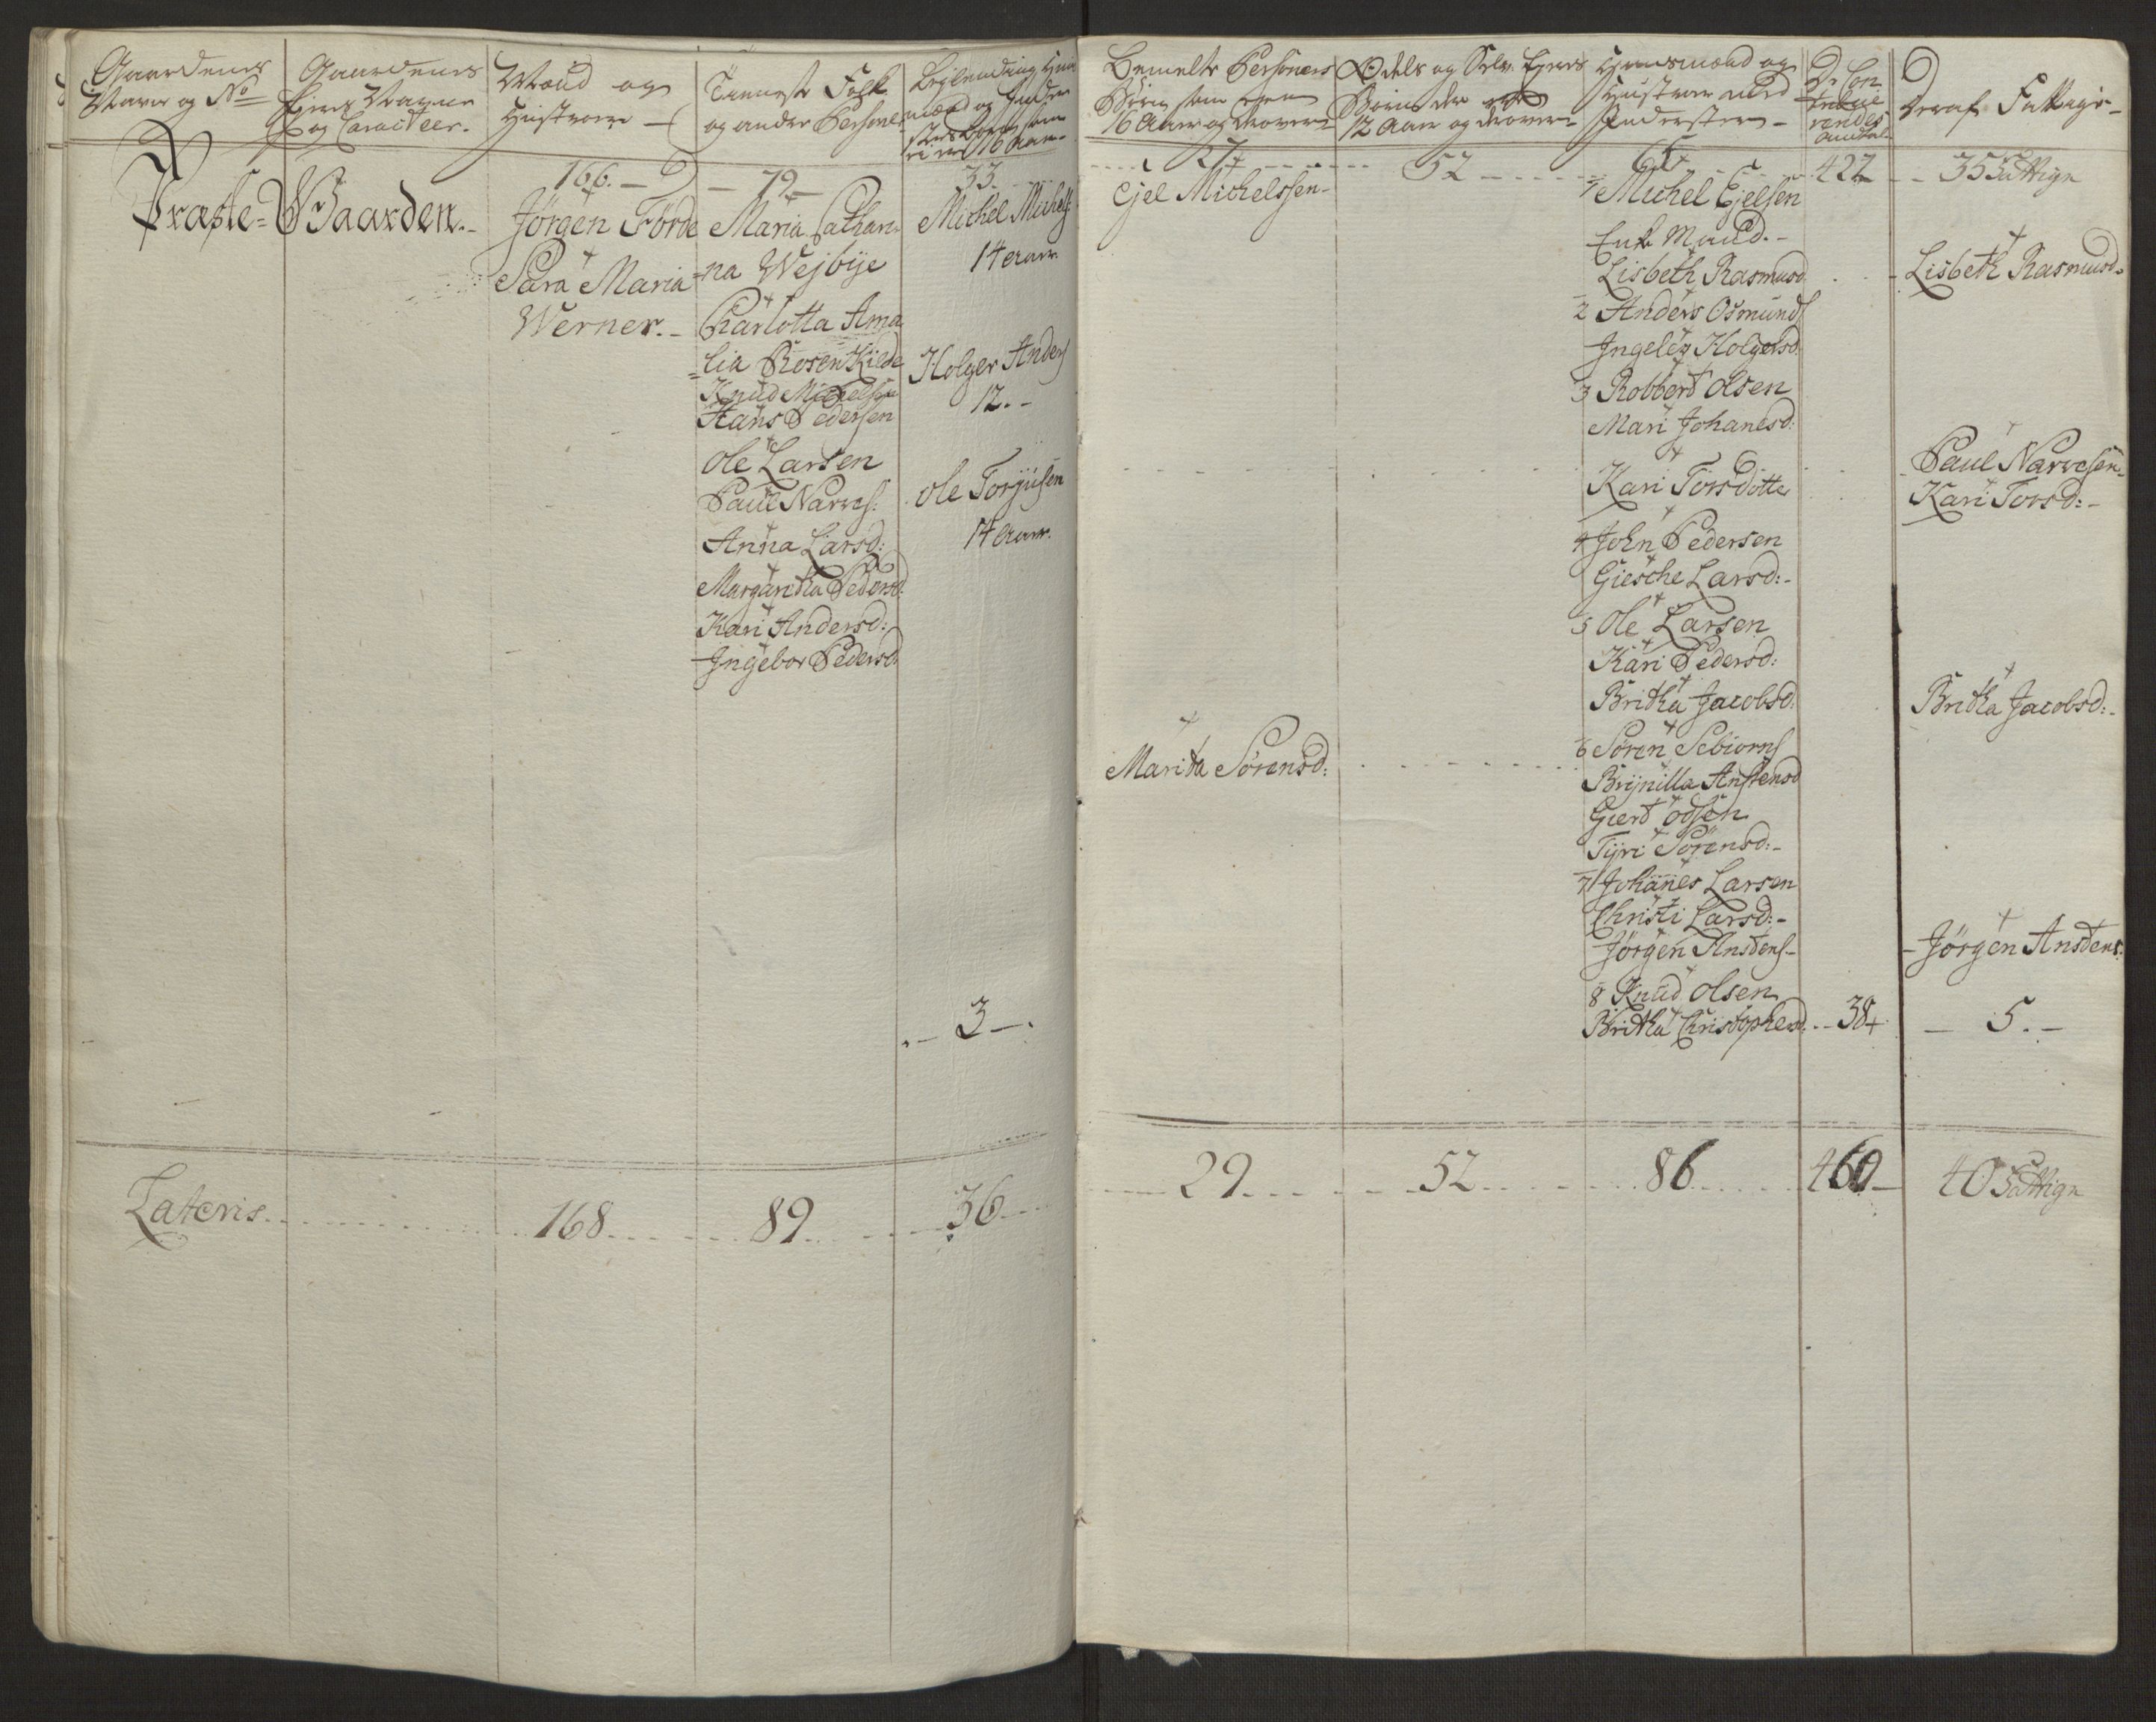 Gaardenes
Navn og No
Gaardenes
Ejers Navne
og Caracteer.
Mænd og
Hustruer
Tienneste Folk
og andre Personer
Bemelte Personers
Børn som ere
16 Aar og derover
Odels og Selv-Ejeres
Børn der ere
12 Aar og derover
Huusmænd og
Hustruer med
Inderster
De Con-
tribue
rendes
Antal
Deraf Fattige
166.
79.
33.
27
52
65
422
35 Fattige
Præste-Gaarden.
Jörgen Förde
Sara Maria
Werner.
Maria Cathari-
na Wejbÿe
Charlotta Ama
lia Rosenkilde
Knud Michelsen
Hans Pedersen
Ole Larsen
Paul Narves:
Anna Larsd:
Margaritha Pedersd:
Kari Andersd:
Ingebor Pedersd:
Michel Michels
14 Aar.
Holger Anders
12.
Ole Torjusen
14 Aar.
3
Ejel Michelssen
Marita Sörensd:
1 Michel Ejelsen
Enke Mand.
Lisbeth Rasmusd
2 Anders Osmunds
Ingeley Holgersd:
3 Robbert Olsen
Mari Johanesd:
Kari Torsdotter
4 John Pedersen
Giesche Larsd:
5 Ole Larsen
Kari Pedersd:
Britha Jacobsd:
6 Sören Sebiorns
Brÿnilla Anstensd
Giert Odsen
Tÿri Sörensd:
7 Johannes Larsen
Christi Larsd:
Jörgen Anstens
8 Knud Olsen
Britha Christophersd:
38
Lisbeth Rasmusd:
Paul Narvesen
Kari Torsd:
Britha Jacobsd:
Jörgen Anstens:
5.
Lateris
168
89
36
29
52
86
460
40 Fattige